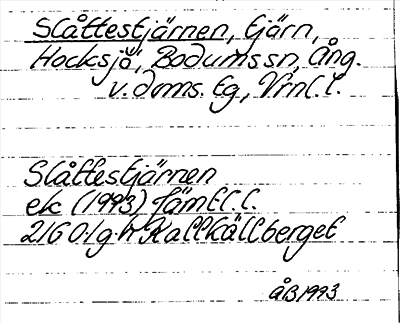 Slåttestjärnen, tjärn,
Hocksjö, Bodums sn, Ång.
v. doms. tg, Vrnl. l.
Slåttestjärnen
ek (1993) Jämtl. l.
21G 0-1g h Kallkällberget
ÅB 1993